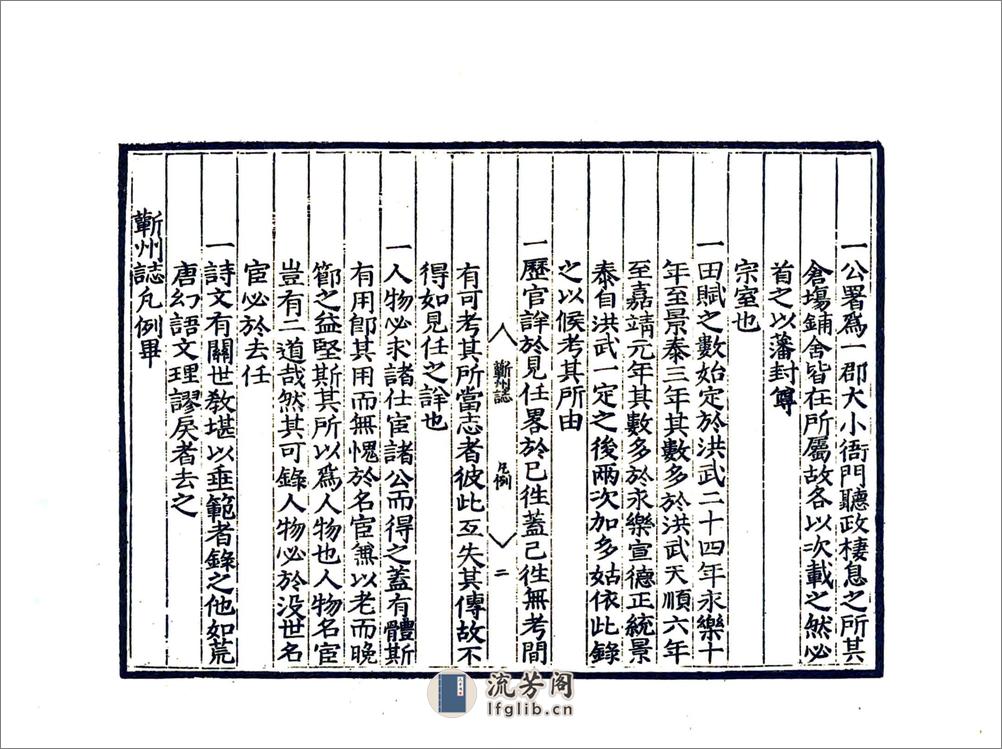 一公署爲一郡大小衙門聽政棲息之所其
倉塲鋪舍皆在所屬故各以次載之然必
首之以藩封尊
宗室也
一田賦之數始定於洪武二十四年永樂十
年至景泰三年其數多於洪武天順六年
至嘉靖元年其數多於永樂宣德正統景
泰自洪武一定之後兩次加多姑依此錄
之以候考其所由
一歷官詳於見任畧於已徃蓋已徃無考間
蘄州誌 凡例 二
有可考其所當志者彼此互失其傳故不
得如見任之詳也
一人物必求諸仕宦諸公而得之蓋有體斯
有用卽其用而無愧於名宦無以老而晚
節之益堅斯其所以爲人物也人物名宦
豈有二道哉然其可錄人物必於没世名
宦必於去任
一詩文有關世敎堪以垂範者錄之他如荒
唐幻語文理謬戾者去之
蘄州誌凡例畢
流芳阁
lfglib.cn